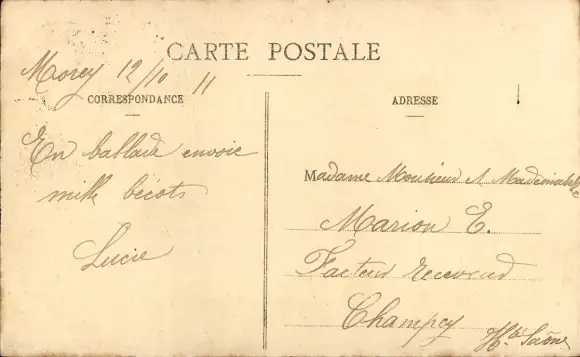 CARTE POSTALE
Morey 12/10 11
CORRESPONDANCE
En ballade envoie
mille bécots
Lucie
ADRESSE
Madame Monsieur & Mademoiselle
Marion E.
Facteur receveur
Champey Hte Saône